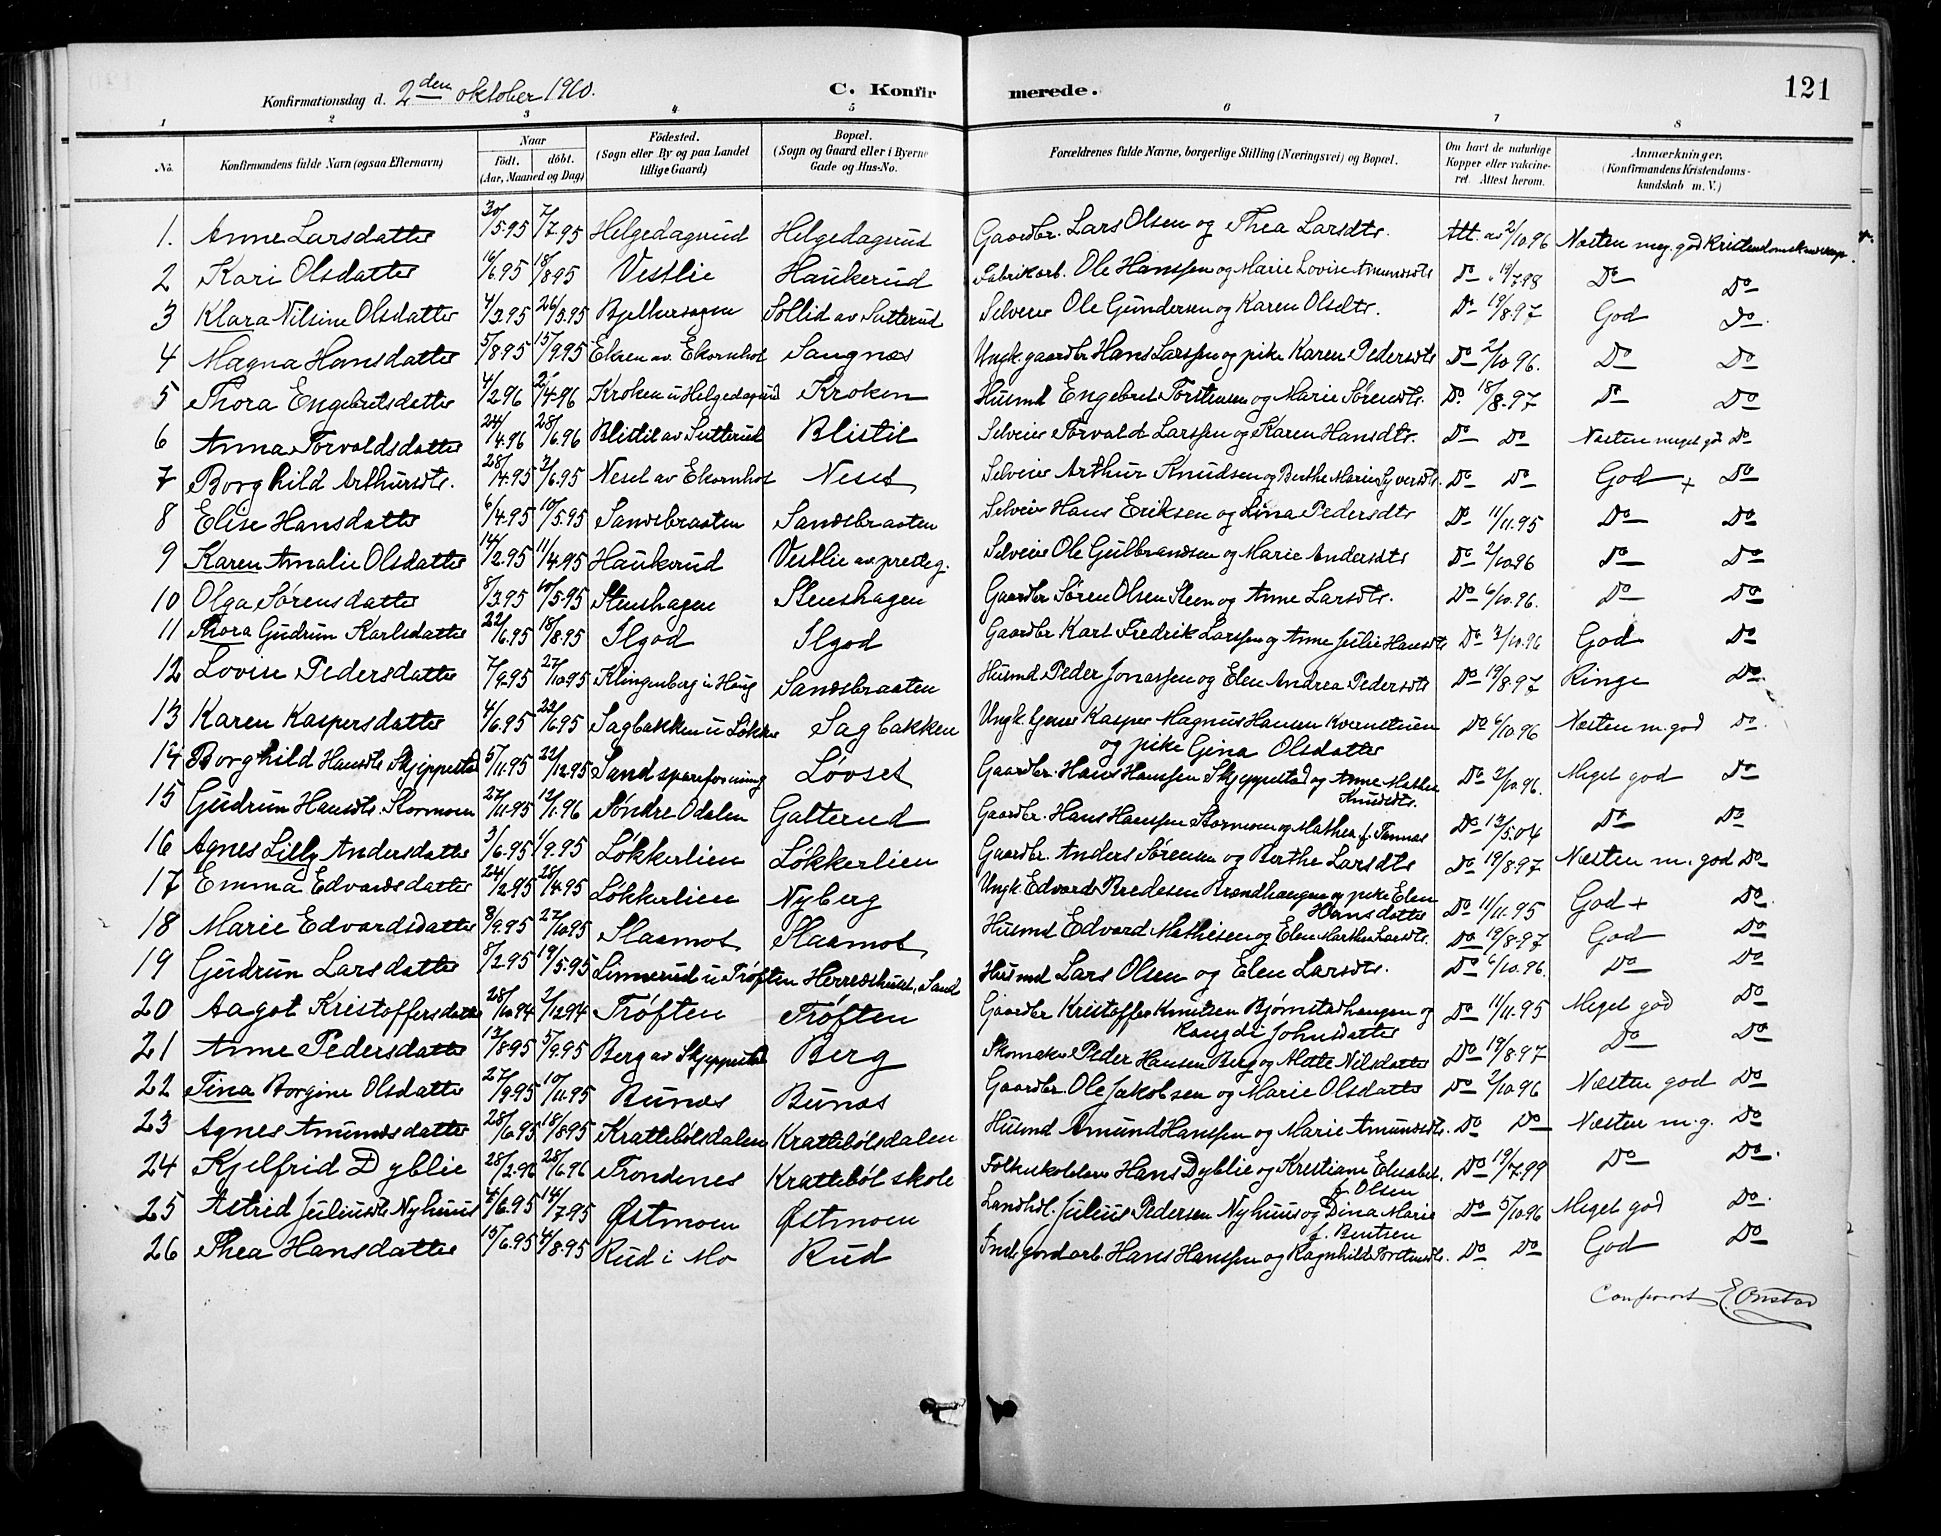 121
Konfirmationsdag d. 2den oktober 1910. C. Konfirmerede.
1 2 3 4 5 6 7 8
No. Konfirmandens fulde Navn (ogsaa Efternavn) Naar født. døbt. (Aar, Maaned og Dag) Fødested. (Sogn eller By og paa Landet tillige Gaard) Bopæl. (Sogn og Gaard eller i Byerne Gade og Hus-No. Forældrenes fulde Navne, borgerlige Stilling (Næringsvei) og Bopæl. Om havt de naturlige Kopper eller vakcineret. Attest herom. Anmærkninger. (Konfirmandens Kristendomskundskab m. V.)
1. Anne Larsdatter 30/5.95 7/7.95 Helgedagsrud Helgedagsrud Gaardbr. Lars Olsen og Thea Larsdtr. Att. av 2/10.96 Næsten meg. god
2 Kari Olsdatter 16/6.95 18/8.95 Vestlie Haukerud Fabrikarb. Ole Hanssen og Marie Lovise Amundsdtr Do 19/7.98 Do Do
3 Klara Nilsine Olsdatter 4/3.95 26/5.95 Sollid av Sutterud Selveier Ole Gundersen og Karen Olsdtr. Do 19/8.97 God Do.
4 Magna Hansdatter 5/8.95 15/9.95 Ekren av Ekornhol Sangnæs Ungk. gaardbr Hans Larssen og pike Karen Pedersdtr Do 2/10.96. Do Do
5 Thora Engebretsdatter 4/2.96 Kroken u Helgedagsrud Kroken Husmd Engebret Torstensen og Marie Sørensdtr. Do. 18/8.97 Do Do
6 Anna Torvaldsdatter 24/4.96 28/6.96 Blistil av Sutterud Blistil Selveier Torvald Larssen og Karen Hansdtr. Do Do Næsten meget god Do
7 Borghild Arthursdtr. 28/4.95 2/6.95 Neset av Ekornhol Neset Selveier Arthur Knudsen og Berthe Marie Syversdtr. Do Do God + Do
8 Elise Hansdatter 6/4.95 10/5.95 Sandsbraaten Sandsbraaten Selveier Hans Eriksen og Lina Pedersdtr Do 11/11.95 Do Do
9 Karen Amalie Olsdatter 14/2.95 11/4.95 Haukerud Vestlie av presteg. Selveier Ole Gulbrandsen og Marie Andersdtr Do 2/10.96 Do Do
10 Olga Sørensdatter 8/3.95 10/5.95 Stenshagen Stenshagen Gaardbr Søren Olsen Steen og Anne Larsdtr. Do 6/10.96. Do Do
11 Thora Gudrun Karlsdatter 22/6.95 18/8.95 Ilgod Ilgod Gaardbr Karl Fredrik Larssen og Anne Julie Hansdtr Do 2/10.96 God Do
12 Lovise Pedersdatter 7/9.95 27/10.95 Klingenberg u Haug Sandsbraaten Husmd Peder Jonassen og Elen Andrea Pedersdtr Do 19/8.97 Ringe Do.
13 Karen Kaspersdatter 4/6.95 23/6.95 Sagbakken u Løkker Sagbakken Ungk. Kasper Magnus Hansen Kvernstuen
og pike Gina Olsdatter Do 6/10.96 Næsten m. god Do.
14 Borghild Hansdtr Skjeppestad 5/11.95 22/12.95 Sand spareforening Løvset Gaardbr. Hans Hanssen Skjeppestad og Anne Mathea
Knudsdtr. Do 2/10.96. Meget god Do
15 Gudrun Hansdtr. Stormoen 27/11.95 12/1.96 Søndre Odalen Galterud Gaardbr. Hans Hanssen Stormoen og Mathea f. Tannæs Do 13/5.04 Do Do
16 Agnes Lilly Andersdatter 3/6.95 1/9.95 Løkkerlien Løkkerlien Gaardbr. Anders Sørensen og Berthe Larsdtr Do 19/8.97 Næsten m. god Do
17 Emma Edvardsdatter 24/2.95 28/4.95 Løkkerlien Nyberg Ungk Edvard Bredesen Brændhaugen og pike Elen
Hansdatter Do 11/11.95 God + Do.
18 Marie Edvardsdatter 8/9.95 27/10.95 Slaamot Slaamot Husmd Edvard Mathisen og Elen Marthea Larsdtr. Do 19/8.97 God Do
19 Gudrun Larsdatter 8/2.95 19/5.95 Linnerud u Trøften Herredshuset, Sand Husmd Lars Olsen og Elen Larsdtr. Do 6/10.96. Do Do
20 Aagot Kristoffersdatter 28/10.94 2/12.94 Trøften Trøften Gaardbr Kristoffer Knutsen Bjørnstadhaugen og
Rangdi Johnsdatter Do 11/11.95 Meget god Do
21 Anne Pedersdatter 12/8.95 5/9.95 Berg av Skjeppestad Berg Skomaker Peder Hansen Berg og Mette Nilsdatter Do 19/8.97 Do Do
22 Tina Borgine Olsdatter 27/9.95 10/11.95 Bunæs Bunæs Gaardbr Ole Jakobsen og Marie Olsdatter Do 2/10.96 Næsten god Do
23 Agnes Amundsdatter 28/6.95 18/8.95 Krattebølsdalen Krattebølsdalen Husmd Amund Hanssen og Marie Amundsdtr. Do Do Næsten m.g. Do
24 Kjelfrid Dyblie 28/2.96 28/6.96 Trondenes Krattebøl skole Folkeskolelærer Hans Dyblie og Kristiane Elisabet
f. Olsen Do 19/7.99 Do Do.
25 Astrid Juliusdtr Nyhuus 4/6.95 14/7.95 Østmoen Østmoen Landhdl. Julius Pedersen Nyhuus og Dina Marie
f. Bentsen Do 5/10.96 Meget god Do.
26 Thea Hansdatter 15/6.95 4/8.95 Rud i Mo Rud Hans Hanssen og Ragnhild Torstensdtr. Do Do God Do
Conferert E. Onstad